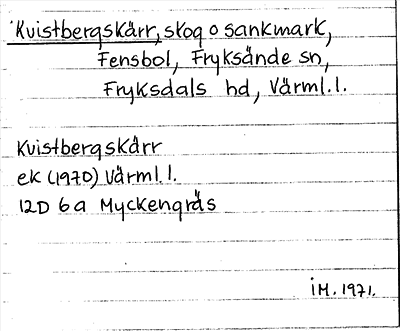 Kvistbergskärr, skog o sankmark,
Fensbol, Fryksände sn,
Fryksdals hd, Värml.l.
Kvistbergskärr
ek (1970) Värml.l.
12D 6a Myckengräs
IM. 1971.